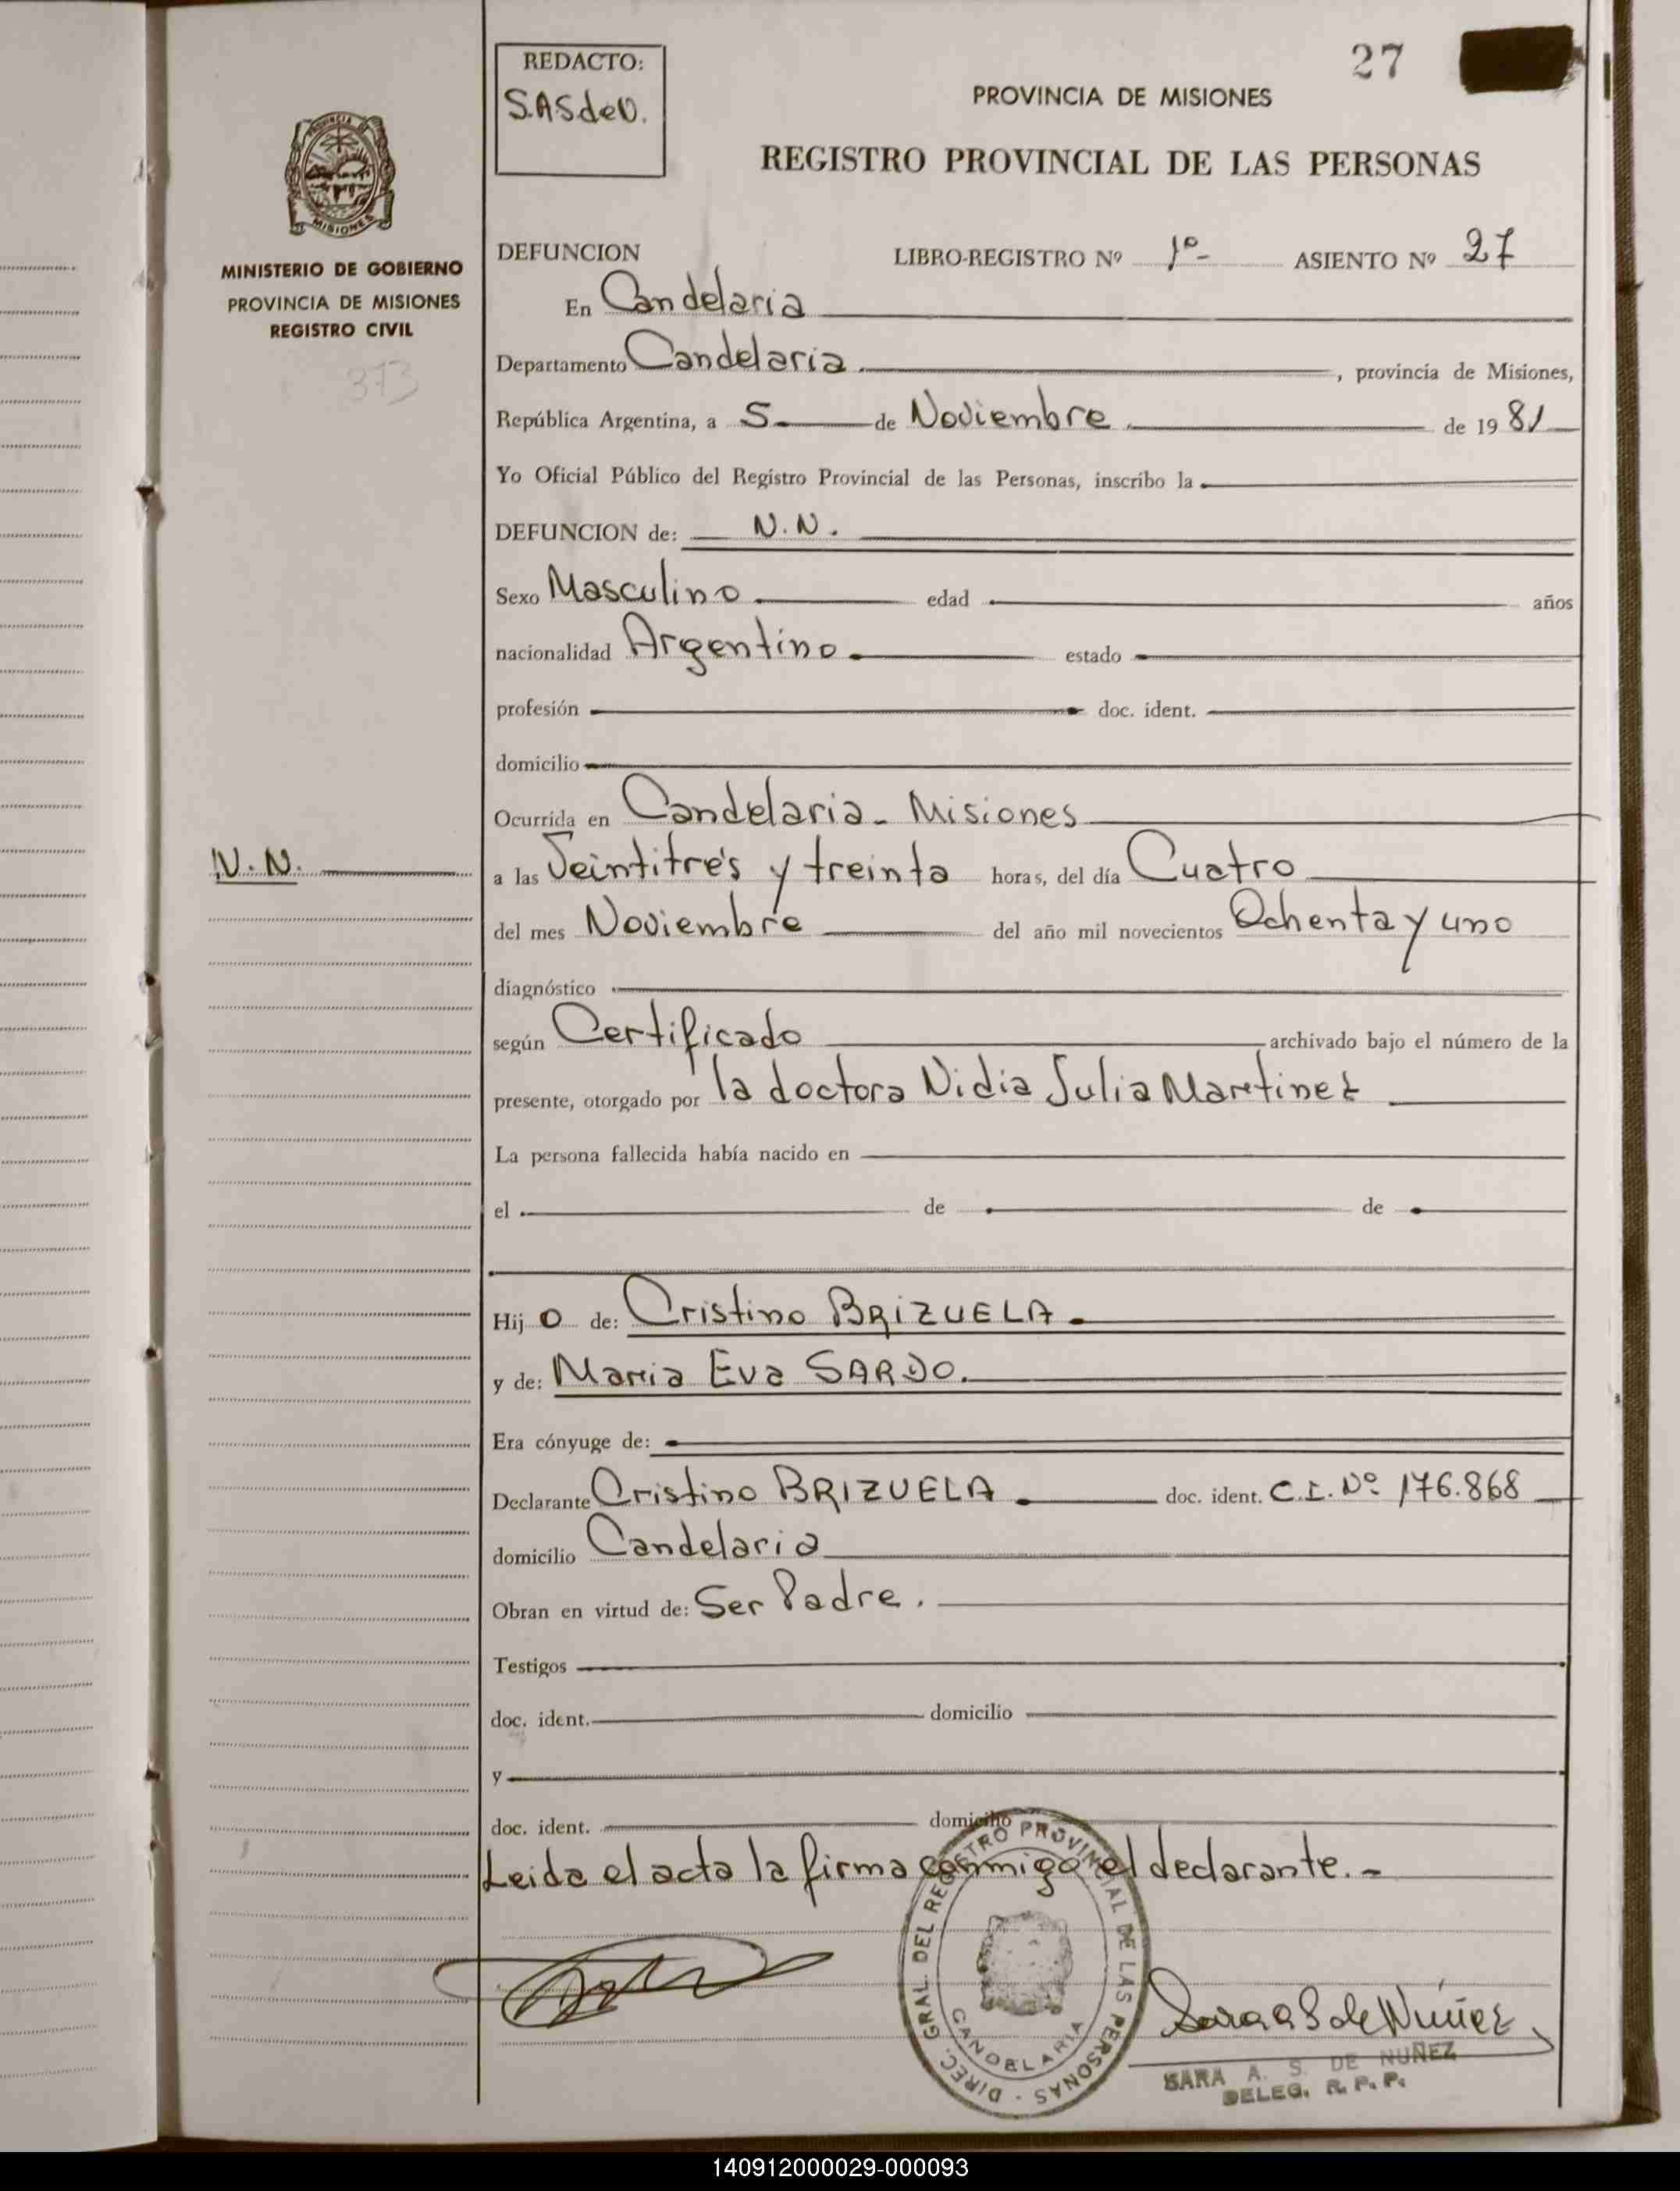 27
REDACTO:
S.A.S.deN.
PROVINCIA DE MISIONES
REGISTRO PROVINCIAL DE LAS PERSONAS
PROVINCIA DE
MISIONES
MINISTERIO DE GOBIERNO
PROVINCIA DE MISIONES
REGISTRO CIVIL
373
DEFUNCION LIBRO-REGISTRO Nº 1º- ASIENTO Nº 27
En Candelaria
Departamento Candelaria , provincia de Misiones,
República Argentina, a 5. de Noviembre de 1981
Yo Oficial Público del Registro Provincial de las Personas, inscribo la
DEFUNCION de: N.N.
Sexo Masculino edad años
nacionalidad Argentino. estado
profesión doc. ident.
domicilio
Ocurrida en Candelaria - Misiones
N.N.
a las Veintitrés y treinta horas, del día Cuatro
del mes Noviembre del año mil novecientos Ochenta y uno
diagnóstico
según Certificado archivado bajo el número de la
presente, otorgado por la doctora Nidia Julia Martinez
La persona fallecida había nacido en
el de de
Hijo de: Cristino BRIZUELA.
y de: Maria Eva SARDO.
Era cónyuge de:
Declarante Cristino BRIZUELA doc. ident. C.I. Nº 176.868
domicilio Candelaria
Obran en virtud de: Ser Padre.
Testigos
doc. ident. domicilio
y
doc. ident. domicilio
Leida el acta la firma conmigo el declarante.-
DIREC. GRAL. DEL REGISTRO PROVINCIAL DE LAS PERSONAS -
CANDELARIA
Sara A S de Núñez
SARA A. S. DE NUÑEZ
DELEG. R. P. P.
140912000029-000093